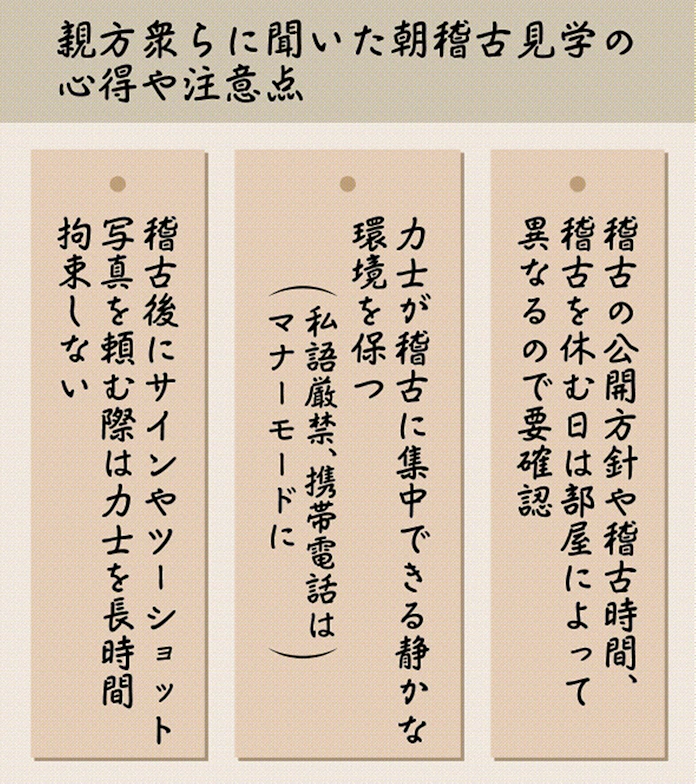 親方衆らに聞いた朝稽古見学の
心得や注意点
稽古の公開方針や稽古時間、
稽古を休む日は部屋によって
異なるので要確認
力士が稽古に集中できる静かな
環境を保つ
（私語厳禁、携帯電話は
マナーモードに）
稽古後にサインやツーショット
写真を頼む際は力士を長時間
拘束しない